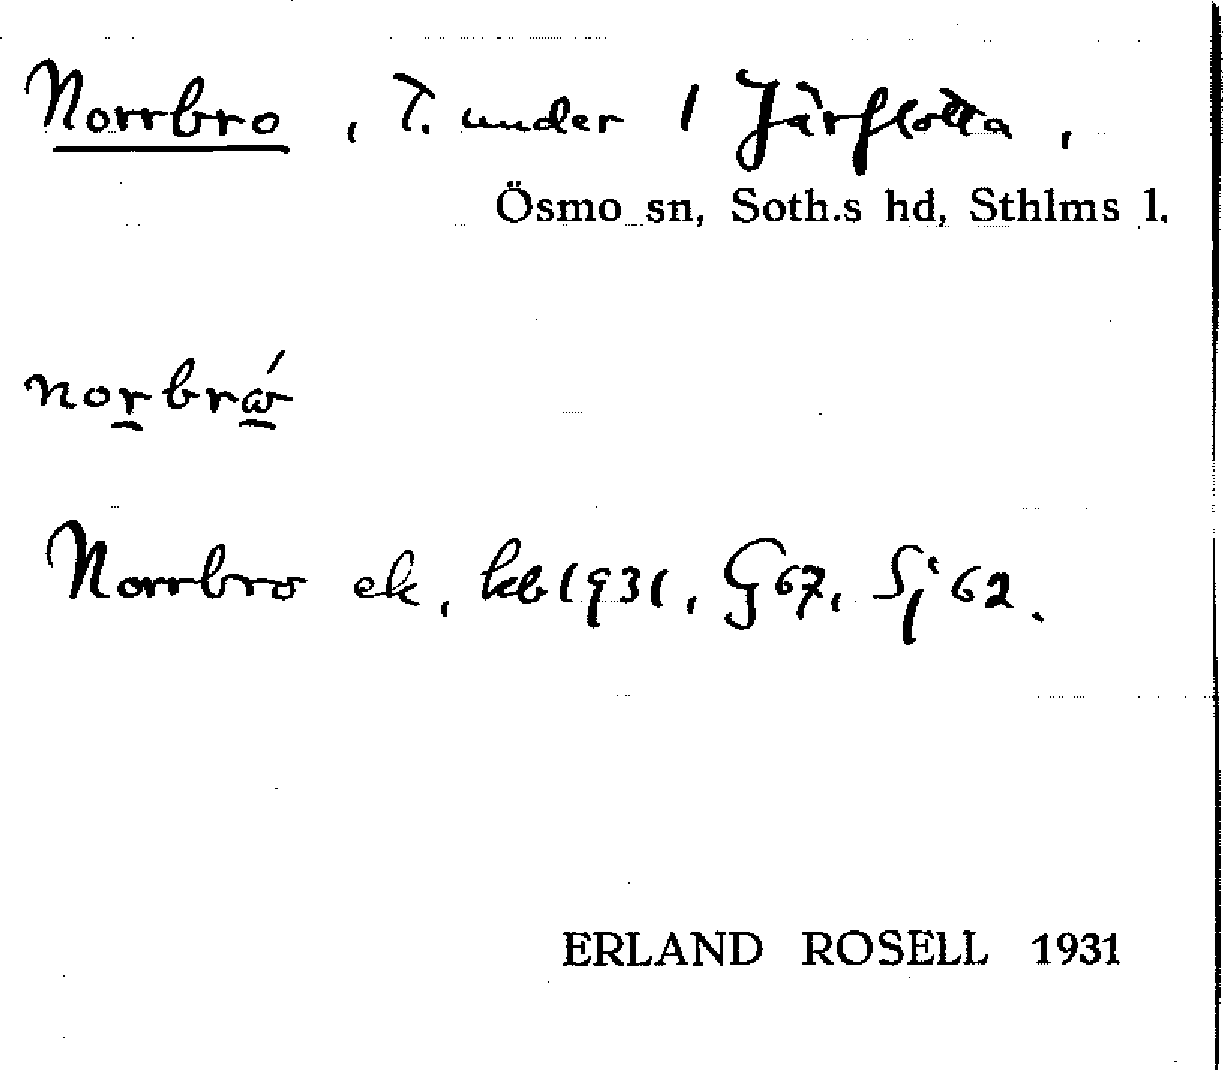 Norrbro, T. under 1 Järflotta,
Ösmo sn, Soth.s hd, Sthlms l.
norbrώ
Norrbro ek, kb 1931, G 67, Sj 62.
ERLAND ROSELL 1931